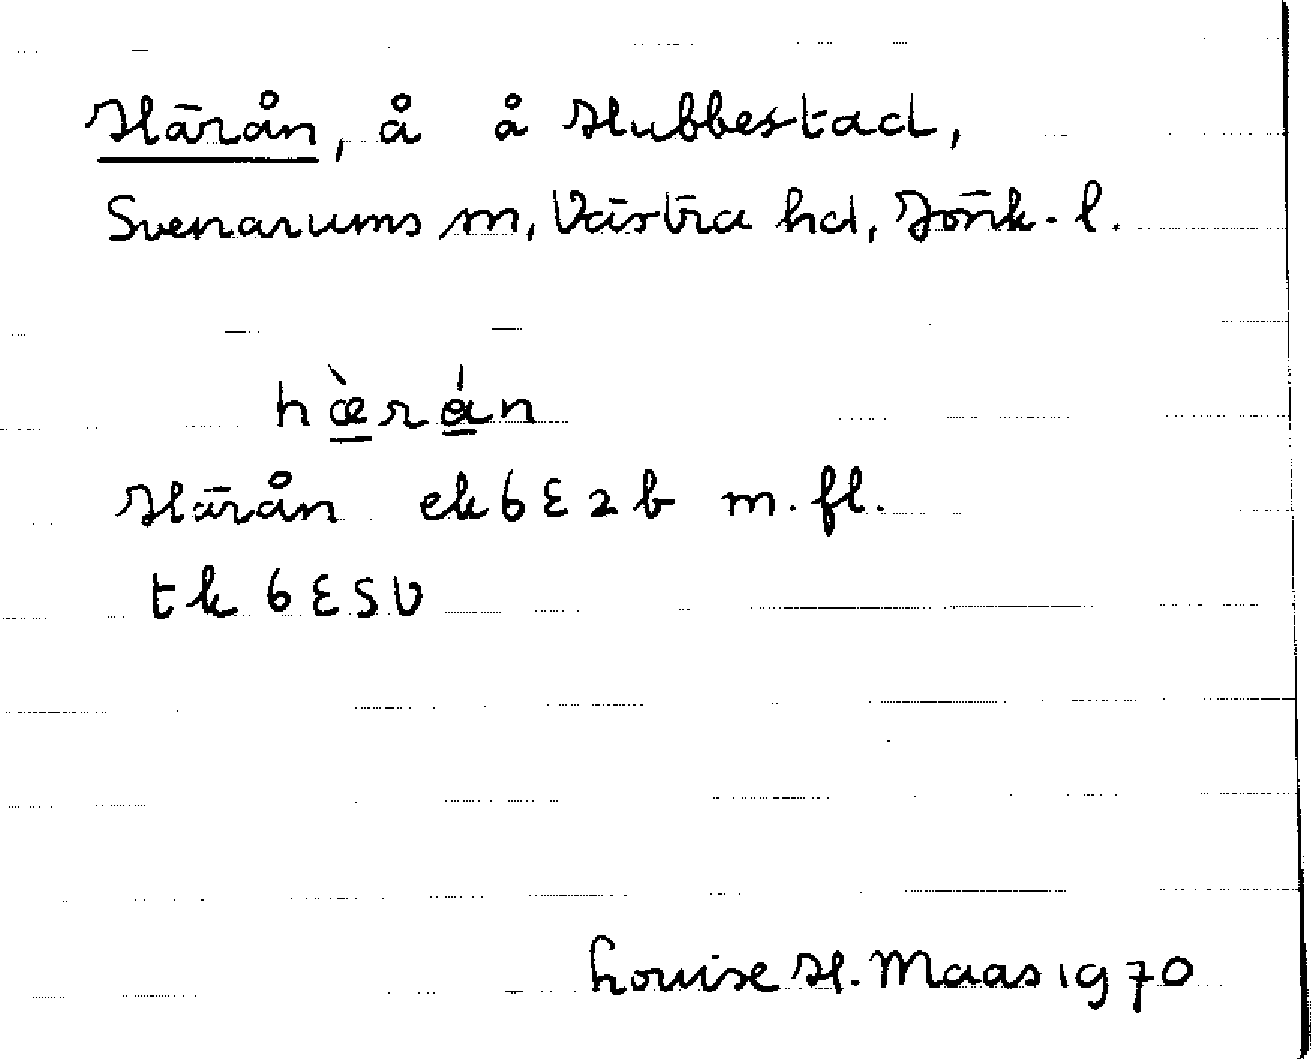 Härån, å å Hubbestad,
Svenarums sn, Västra hd, Jönk. l.
hæ̀rán
Härån ek 6E2b m. fl.
tk 6ESV
Louise H. Maas 1970